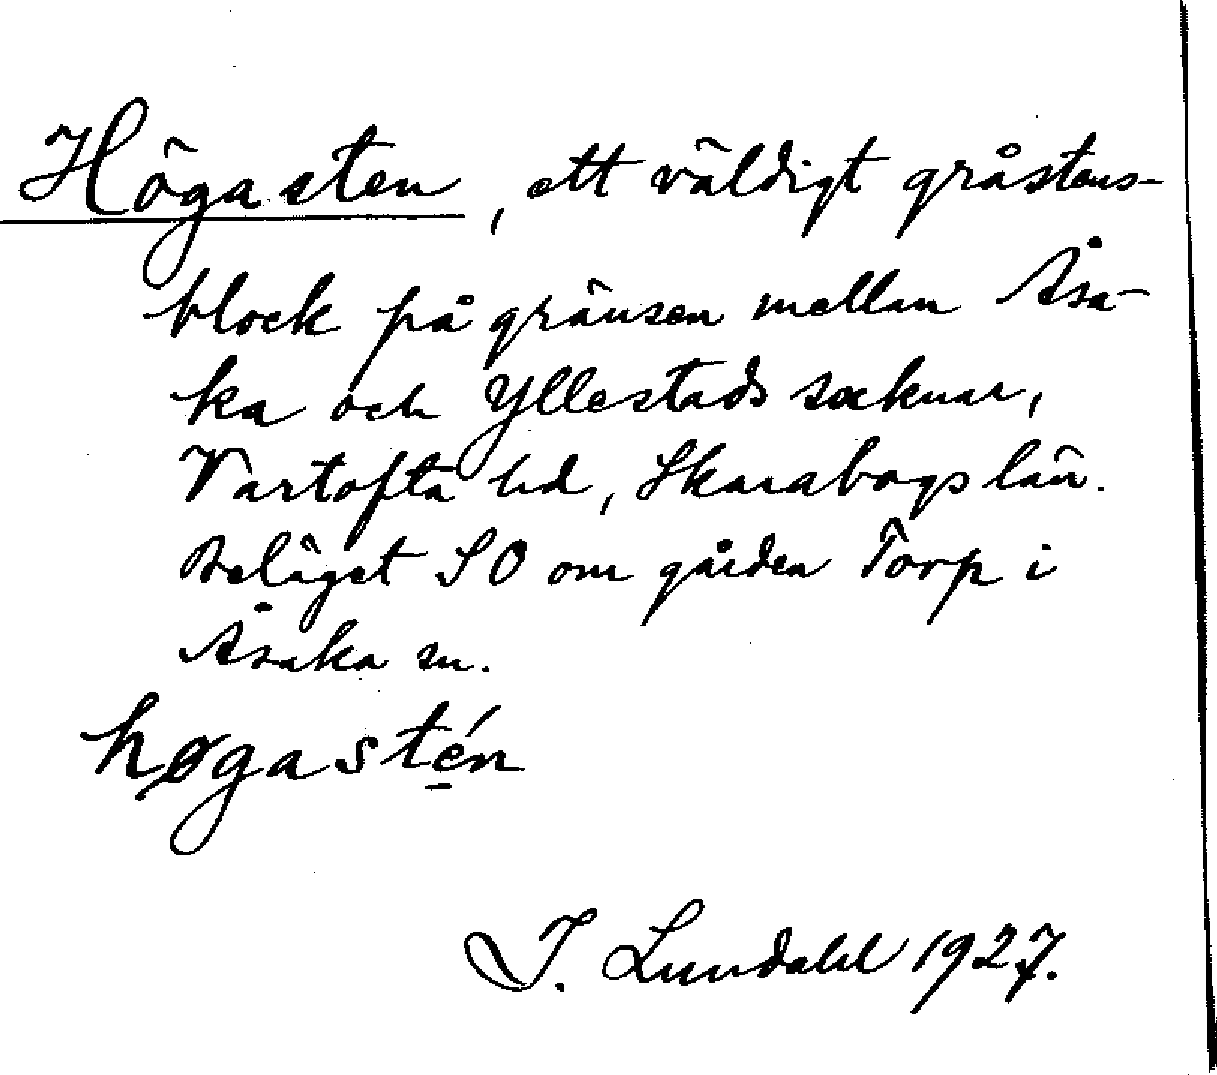 Högasten, ett väldigt gråstens-
block på gränsen mellan Åsa-
ka och Yllestads socknar,
Vartofta hd, Skaraborgs län.
Beläget SO om gården Torp i
Åsaka sn.
høgastén
I. Lundahl 1927.